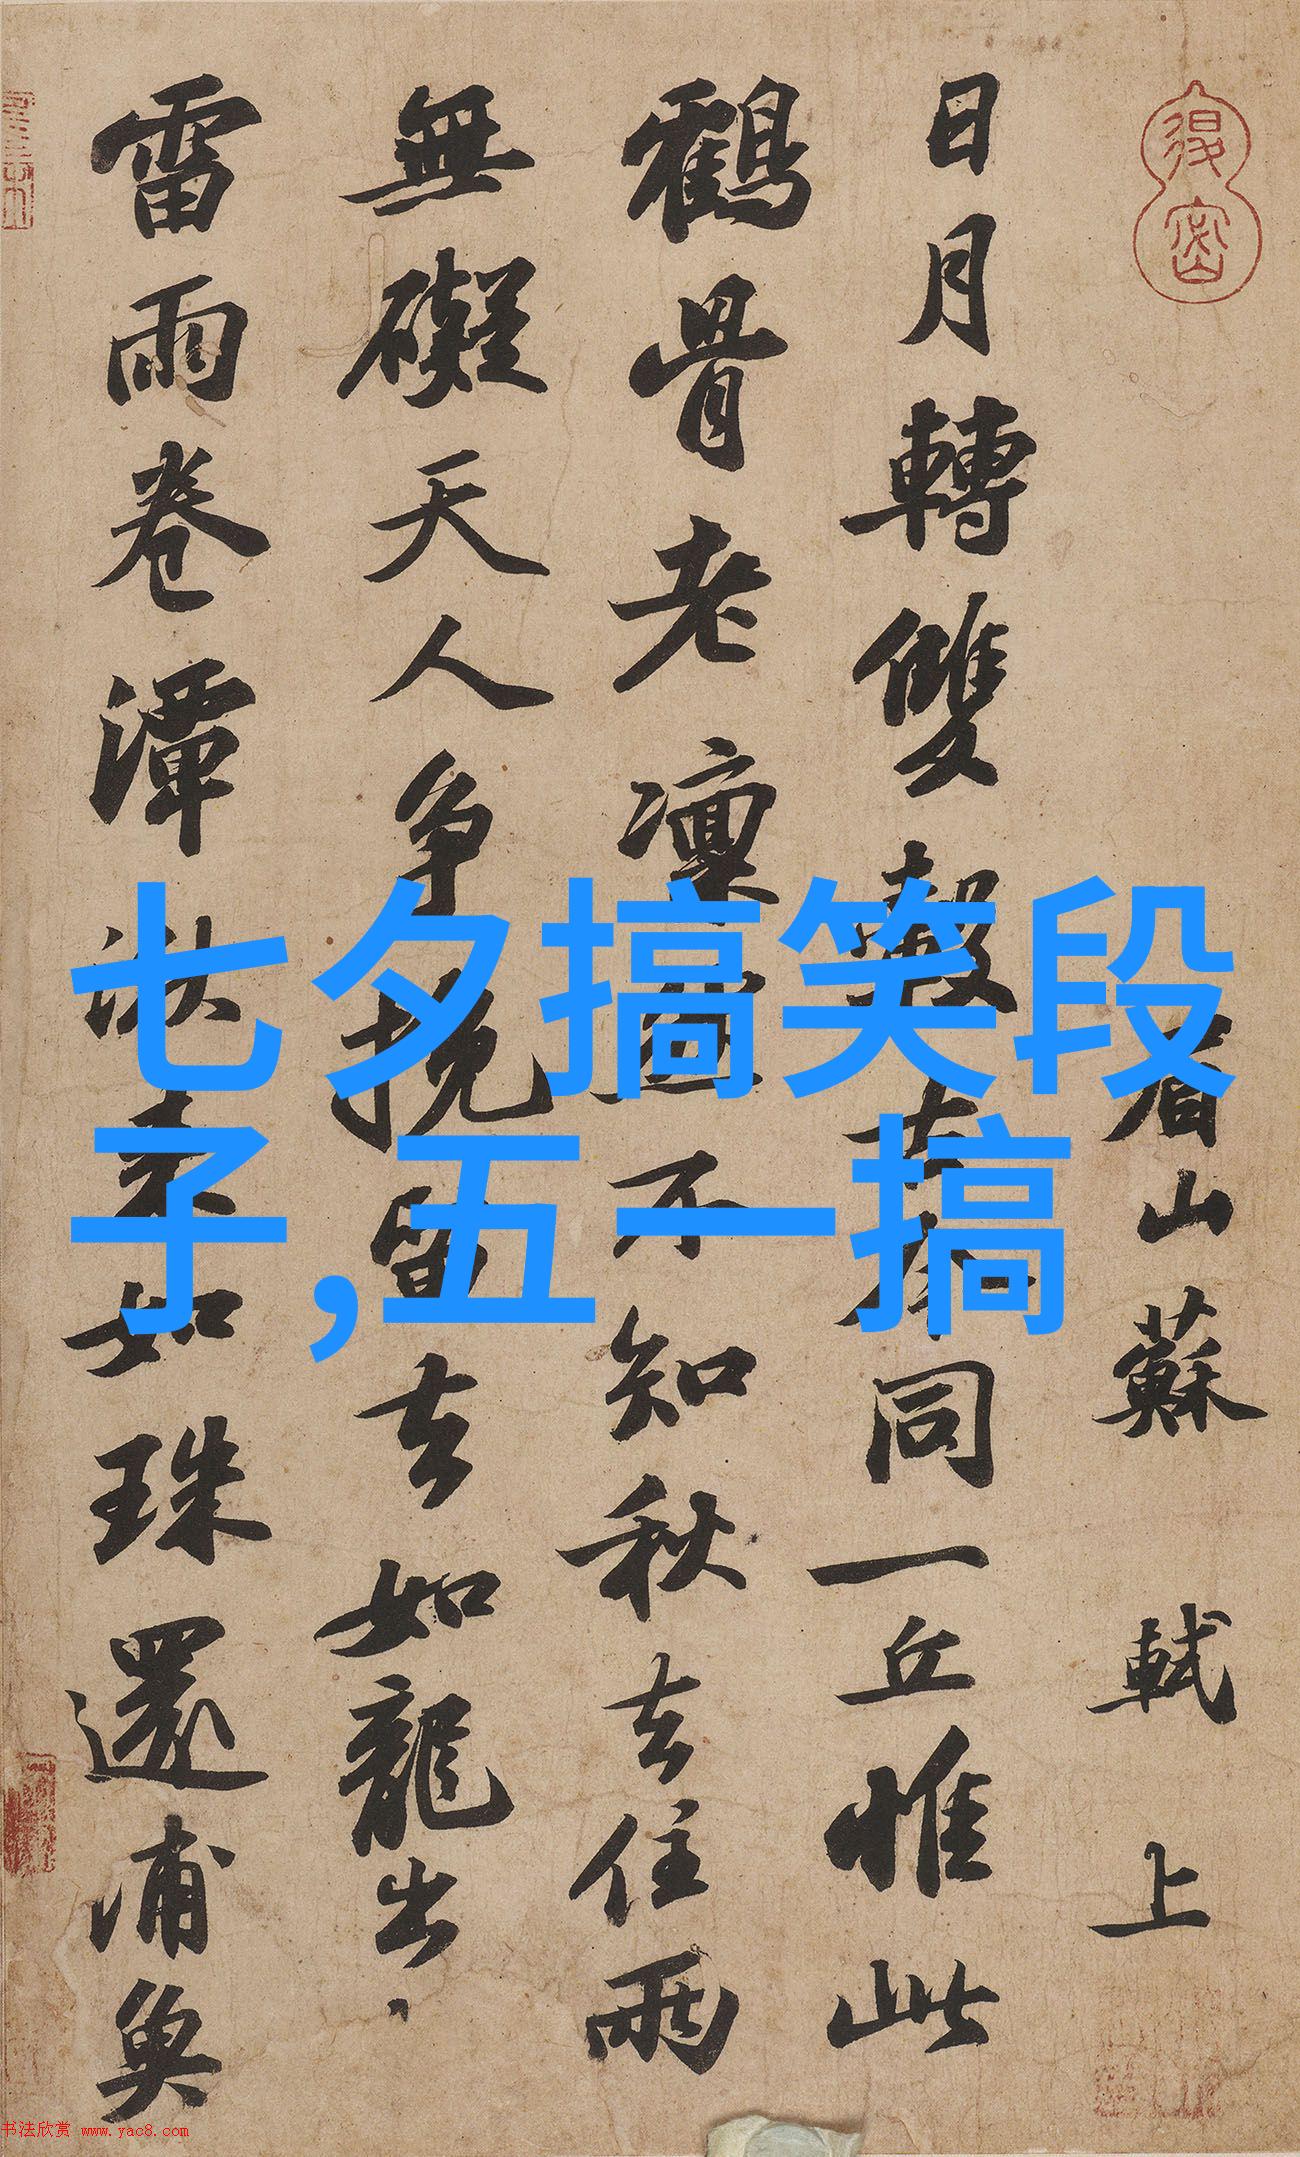 眉山蘇軾上
日月轉雙轂古今同一丘惟此
鶴骨老凜然不知秋去住兩
無礙天人爭挽留去如龍出
雷雨卷潭湫來如珠還浦魚
七夕搞笑段
子,五一搞
书法欣赏 www.yac8.com